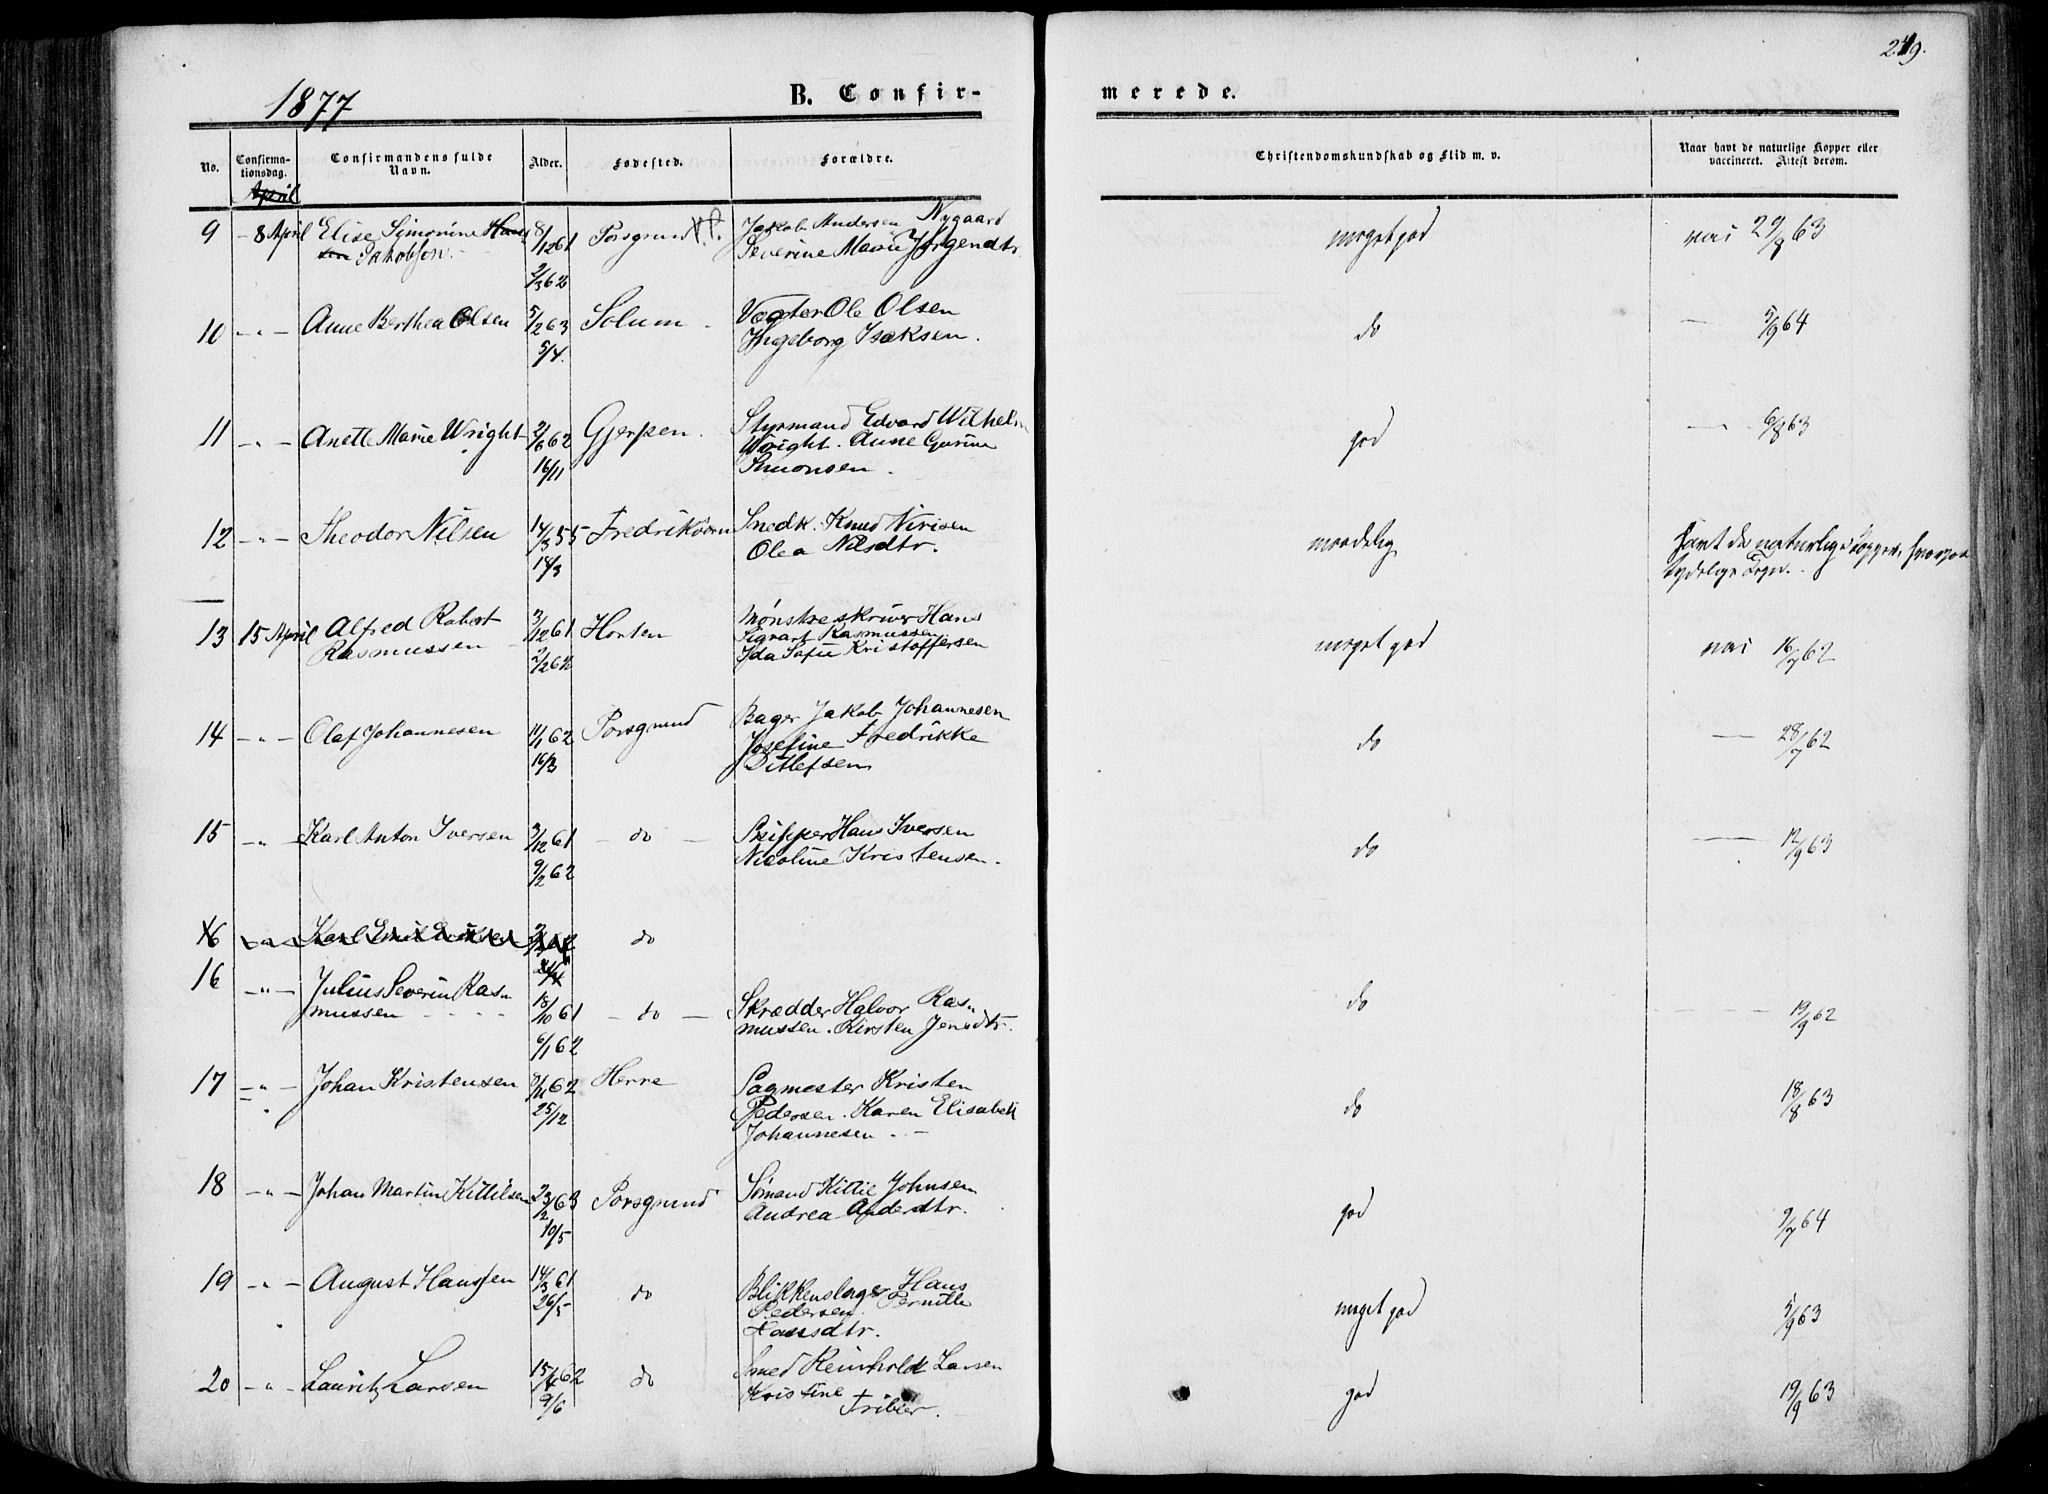 279.
1877
B. Confirmerede.
No.
Confirmationsdag.
Confirmandens fulde Navn.
Alder.
Fødested.
Forældre.
Christendomskundskab og Flid m. v.
Naar havt de naturlige Kopper eller vaccineret. Attest derom.
April
9 - 8 April Elise Simonine Hansen Jakobsen. 8/12 61 2/3 62 Porsgrund Jakob Andersen Nygaard
Severine Marie Jørgendtr meget god vac 29/8 63
10 - " - Anne Berthea Olsen 5/2 63 5/4. Solum Vogter Ole Olsen
Ingeborg Isaksen. do 5/9 64
11 - " - Anette Marie Wright 2/6 62 16/11 Gjerpen. Styrmand Edvard Wilhelm
Wright. Anne Gurine
Simonsen. god — 6/8 63
12 - " - Theodor Nilsen 14/3 55 14/3 Fredriksværn Snedk. Knud
Olea Nilsdtr. maadelig havt de naturlige Kopper, hvorpaa
tydelige Tegn.
13 15 April Alfred Robert
Rasmussen 3/12 61 2/2 62 Horten Mønstreskriver Hans
Sigvart Rasmussen
Ida Sofie Kristoffersen meget god vac 16/7 62
14 - " - Olaf Johannesen 11/1 62 16/3 Porsgrund Bager Jakob Johannesen
Josefine Fredrikke
Ditlefsen do — 28/7 62
15 - " - Karl Anton Iversen 3/12 61 9/2 62 - do - Skipper Hans Iversen
Nicoline Kristensen. do — 12/9 63
16 - " - Karl Emil do
16 - " - Julius Severin Rasmussen 18/10 61 6/1 62 - do - Skrædder Halvor Rasmussen. Kirsten Jensdtr. do 19/9 62
17 - " - Johan Kristensen 62 25/12 Herre Sagmester Kristen
Pedersen. Karen Elisabeth
Johannesen. do 18/8 63
18 - " - Johan Martin Kittilsen 23/2 63 10/5 Porsgrund Sømand Kittil Johnsen
Andrea Andersdtr. god 9/7 64
19 - " - August Hansen 14/3 61 26/5 do Blikkenslager Hans
Pedersen. Pernille
Hansdtr. meget god 5/9 63
20 - " - Lauritz Larsen 15/4 62 9/6 do Smed Reinholdt Larsen
Kristine
Tribier. god 19/9 63